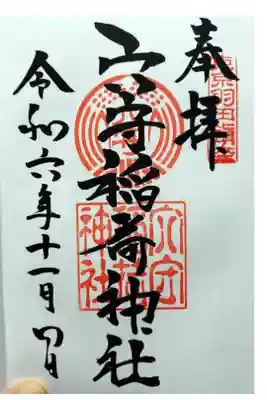 奉拝
東京羽田鎮座
穴守稲荷神社
穴守稲荷神社
令和六年十一月四日